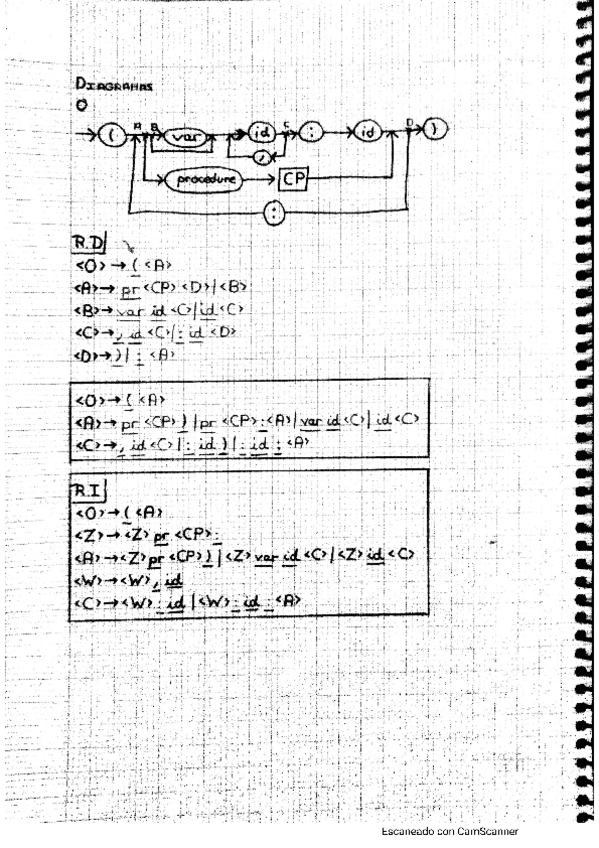 DIAGRAMAS
O
A B C D
( var id : id )
,
procedure CP
:
R.D
<O> → ( <A>
<A> → pr <CP> <D> | <B>
<B> → var id <C> | id <C>
<C> → , id <C> | : id <D>
<D> → ) | : <A>
<O> → ( <A>
<A> → pr <CP> ) | pr <CP> : <A> | var id <C> | id <C>
<C> → , id <C> | : id ) | : id : <A>
R.I
<O> → ( <A>
<Z> → <Z> pr <CP> :
<A> → <Z> pr <CP> ) | <Z> var id <C> | <Z> id <C>
<W> → <W> , id
<C> → <W> : id | <W> : id : <A>
Escaneado con CamScanner